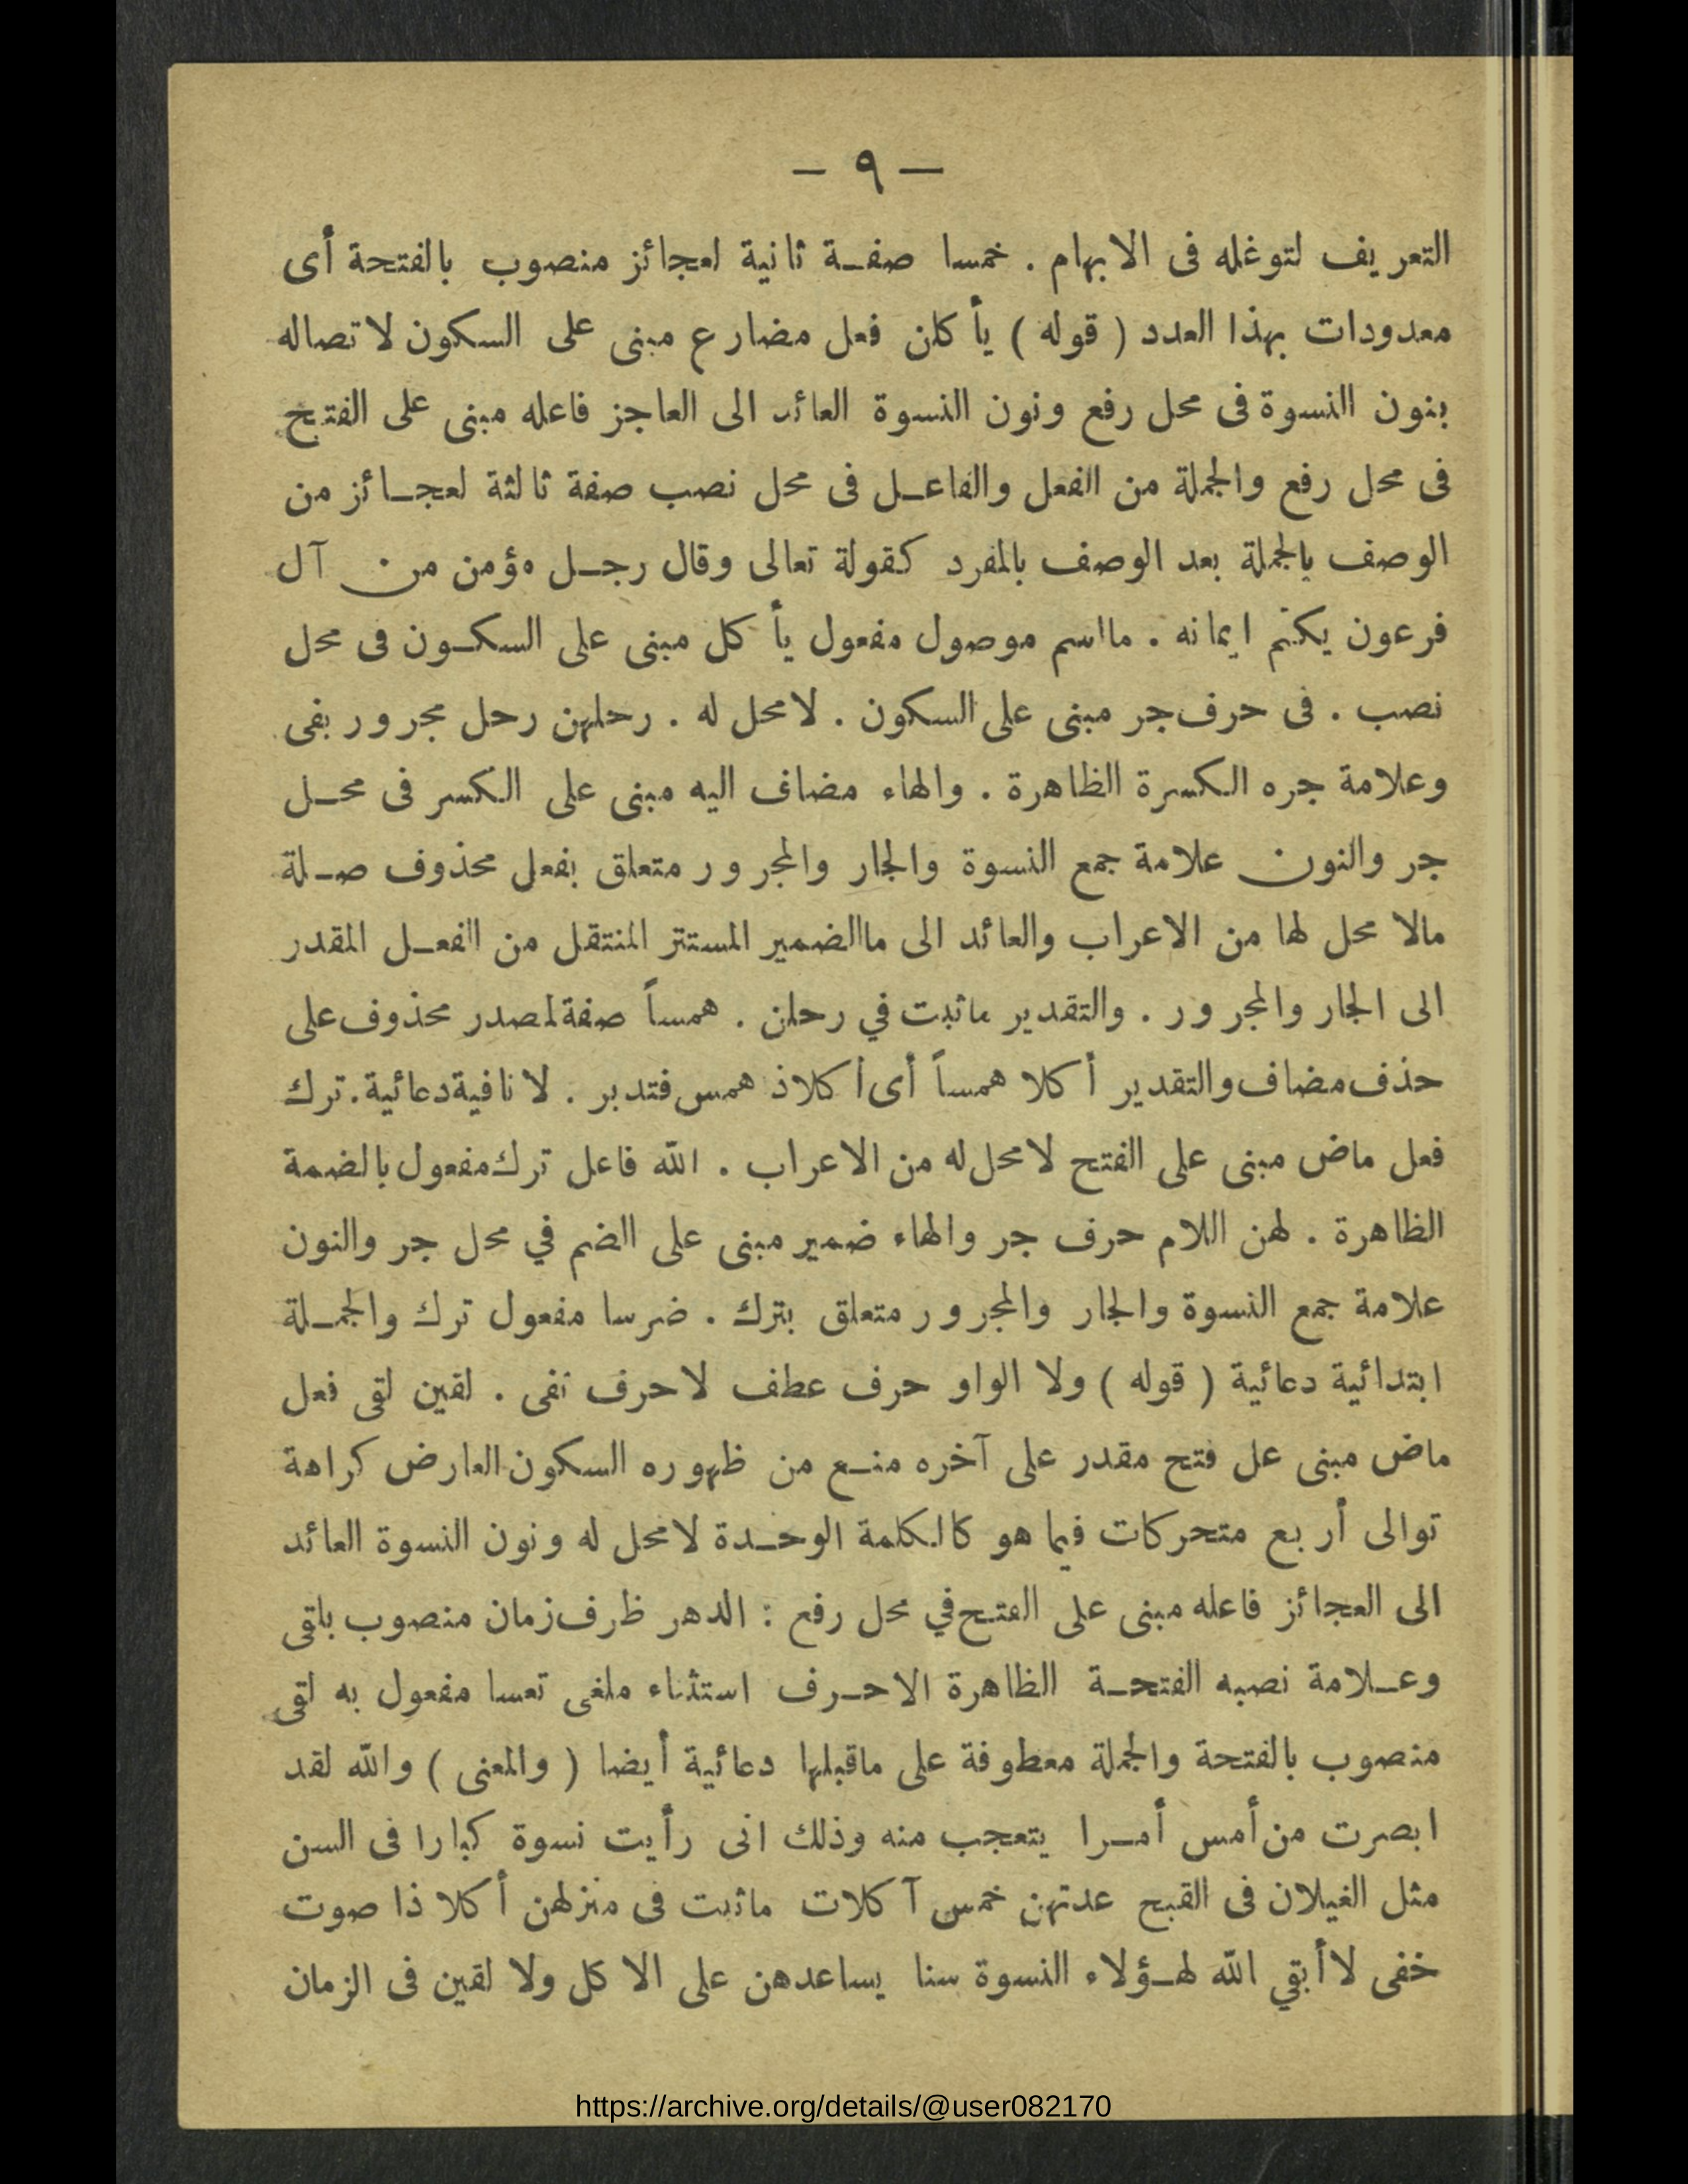 — ٩ —
التعريف لتوغله فى الابهام . خمسا صفة ثانية لعجائز منصوب بالفتحة أى
معدودات بهذا العدد ( قوله ) يأكلن فعل مضارع مبنى على السكون لاتصاله
بنون النسوة فى محل رفع ونون النسوة العائد الى العاجز فاعله مبنى على الفتح
فى محل رفع والجملة من الفعل والفاعل فى محل نصب صفة ثالثة لعجائز من
الوصف بالجملة بعد الوصف بالمفرد كقولة تعالى وقال رجل مؤمن من آل
فرعون يكتم ايمانه . مااسم موصول مفعول يأكل مبنى على السكون فى محل
نصب . فى حرف جر مبنى على السكون . لامحل له . رحلهن رحل مجرور بفى
وعلامة جره الكسرة الظاهرة . والهاء مضاف اليه مبنى على الكسر فى محل
جر والنون علامة جمع النسوة والجار والمجرور متعلق بفعل محذوف صلة
مالا محل لها من الاعراب والعائد الى ماالضمير المستتر المنتقل من الفعل المقدر
الى الجار والمجرور . والتقدير ماثبت في رحلن . همساً صفة لمصدر محذوف على
حذف مضاف والتقدير أكلا همساً أى أكلاذ همس فتدبر . لا نافية دعائية . ترك
فعل ماض مبنى على الفتح لامحل له من الاعراب . الله فاعل ترك مفعول بالضمة
الظاهرة . لهن اللام حرف جر والهاء ضمير مبنى على الضم في محل جر والنون
علامة جمع النسوة والجار والمجرور متعلق بترك . ضرسا مفعول ترك والجملة
ابتدائية دعائية ( قوله ) ولا الواو حرف عطف لاحرف نفى . لقين لقى فعل
ماض مبنى عل فتح مقدر على آخره منع من ظهوره السكون العارض كراهة
توالى أربع متحركات فيما هو كالكلمة الوحدة لامحل له ونون النسوة العائد
الى العجائز فاعله مبنى على الفتح في محل رفع : الدهر ظرف زمان منصوب بلقى
وعلامة نصبه الفتحة الظاهرة الاحرف استثناء ملغى تعسا مفعول به لقى
منصوب بالفتحة والجملة معطوفة على ماقبلها دعائية أيضا ( والمعنى ) والله لقد
ابصرت من أمس أمرا يتعجب منه وذلك انى رأيت نسوة كبارا فى السن
مثل الغيلان فى القبح عدتهن خمس آكلات ماثبت فى منزلهن أكلا ذا صوت
خفى لاأبقي الله لهؤلاء النسوة سنا يساعدهن على الاكل ولا لقين فى الزمان
https://archive.org/details/@user082170